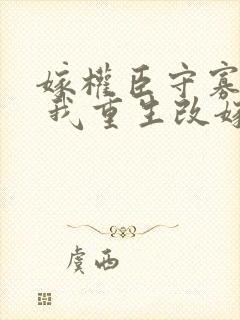 嫁權臣守寡
我重生改嫁
虞西